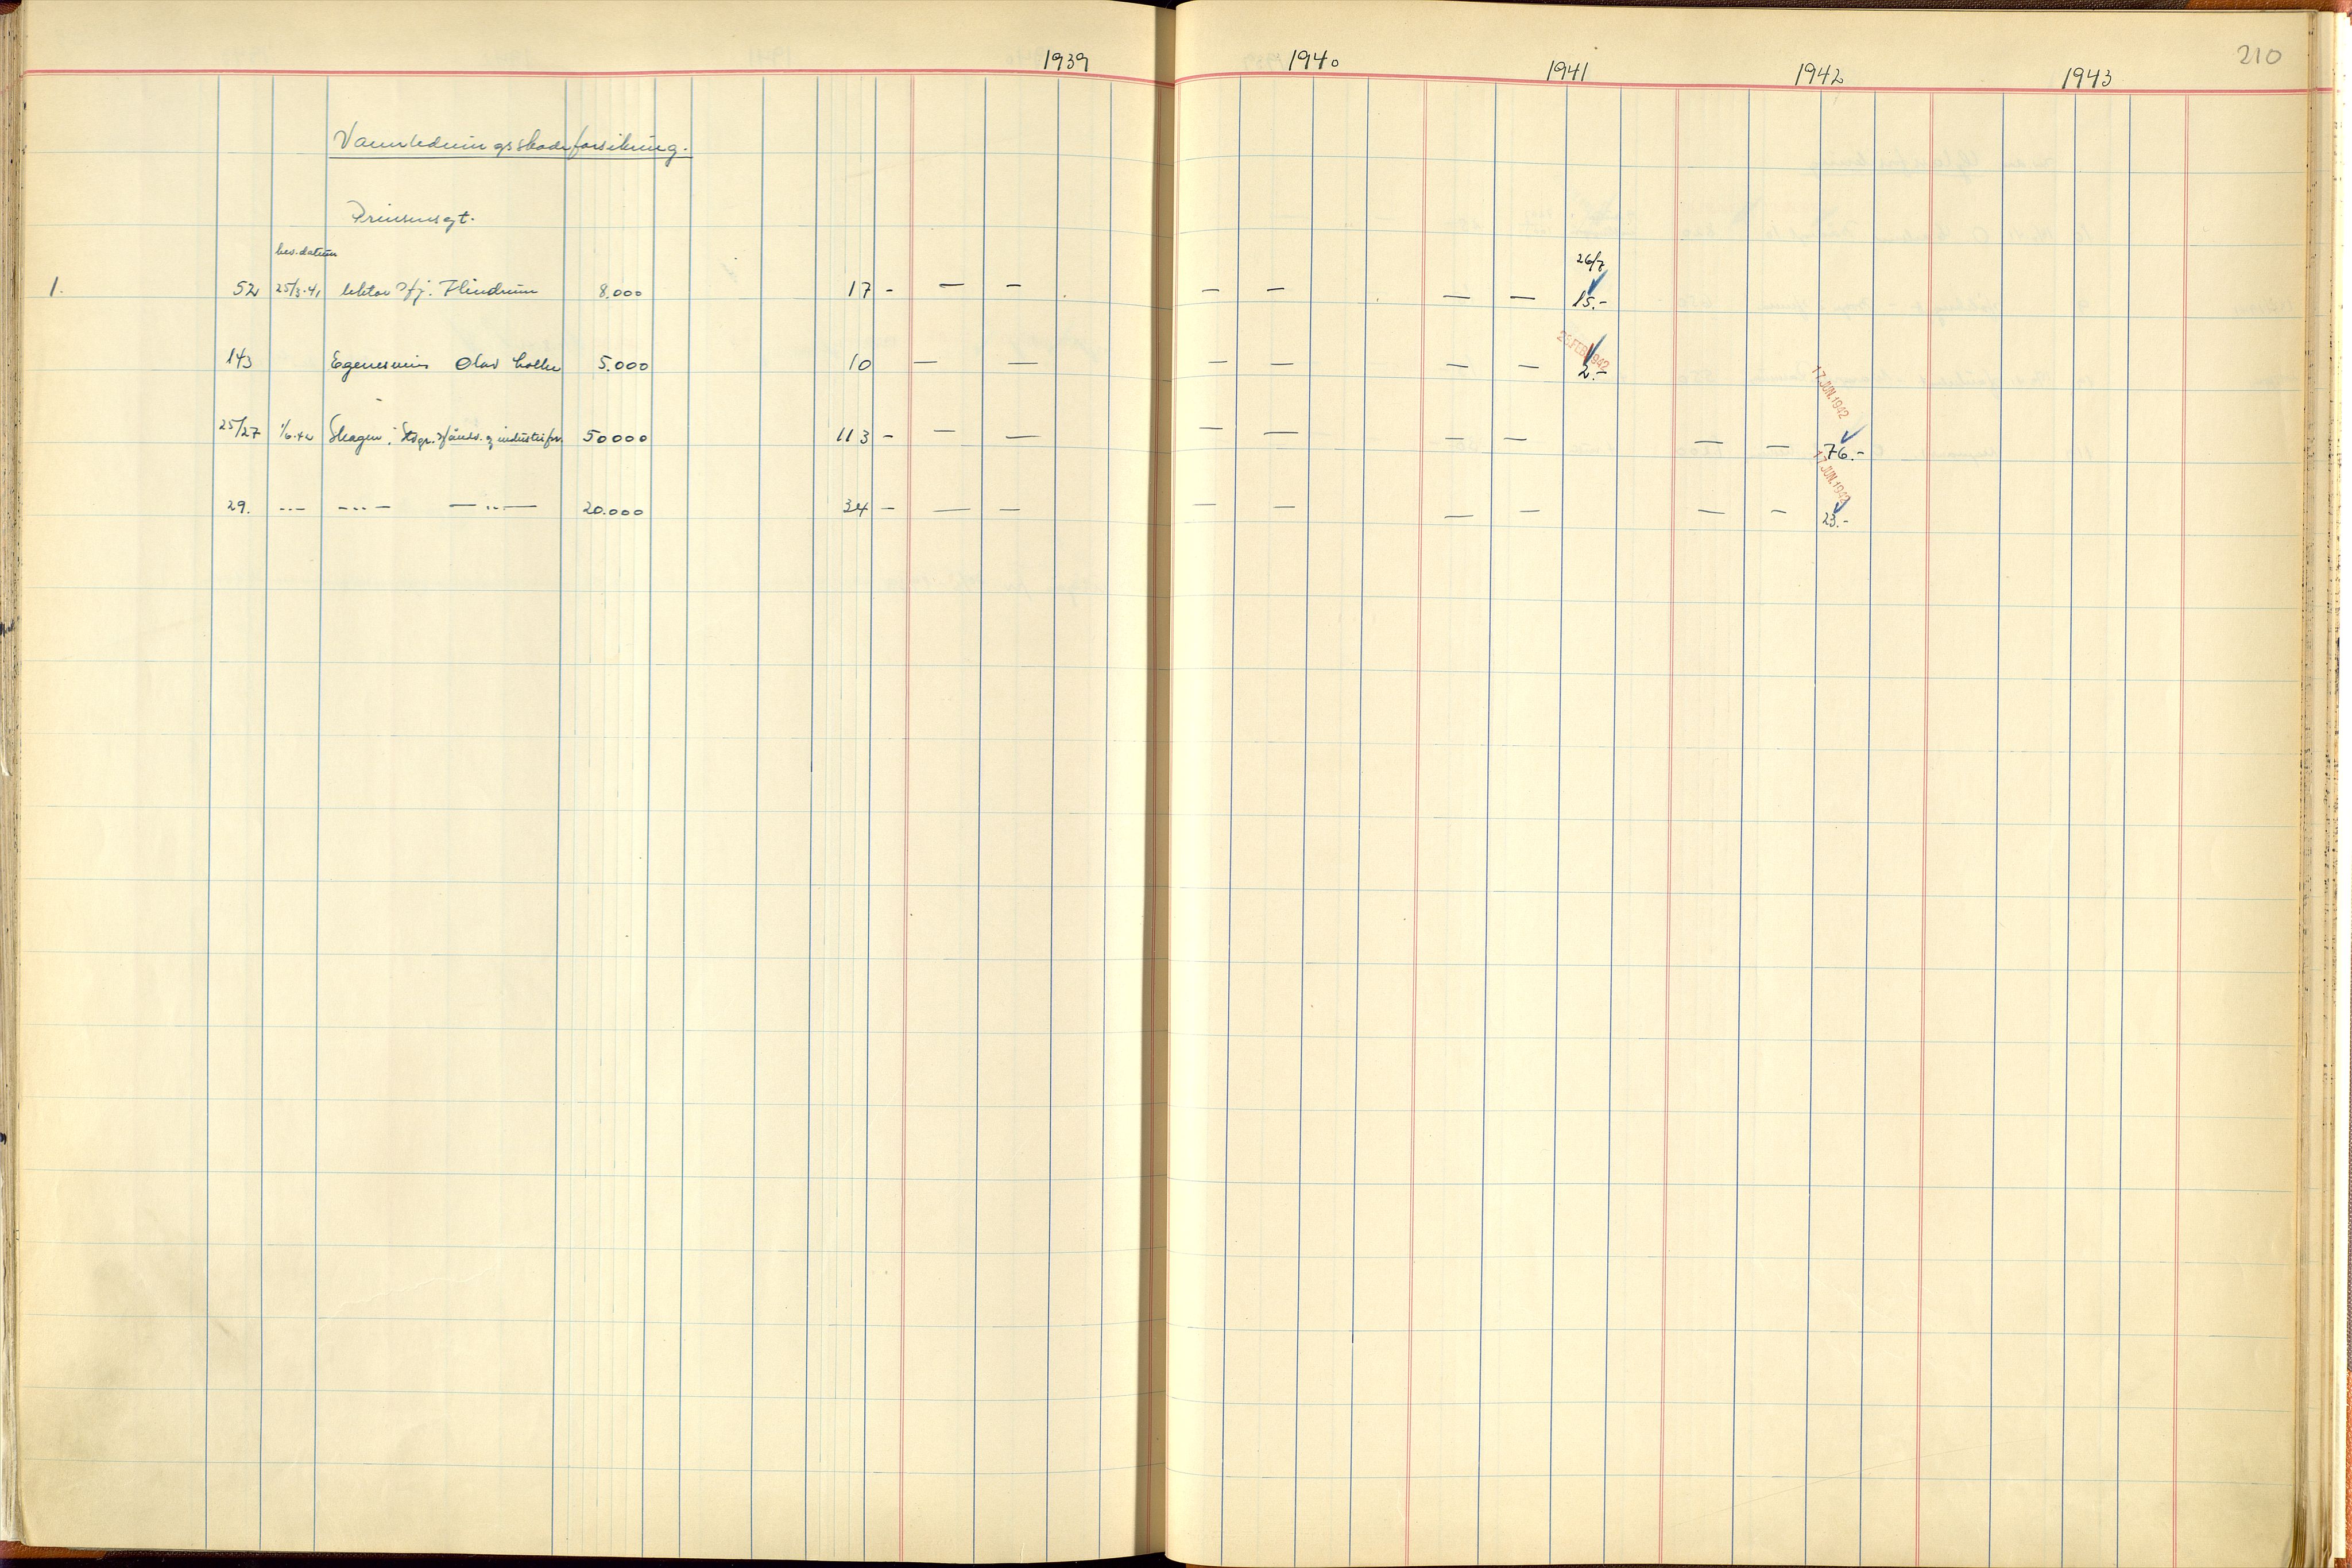 1939 1940 1941 1942 1943 210
Vannledningsskadeforsikring.
Prinsensgt.
bev. datum
26/7
1. 52 25/3-41 lektor Hfj. Flindrum 8.000 17 - — — — — — — 15.-
26. FEB. 1942
143 Egenesminn Olav Colbu 5.000 10 — — — — — — 2.-
17 JUN. 1942
25/27 1/6-42 Skagen, og industrifor. 50000 113 - — — — — — — — — 76.-
17 JUN. 1942
29. -..- -..- —..— 20.000 34 - — — — — — — — — 23.-